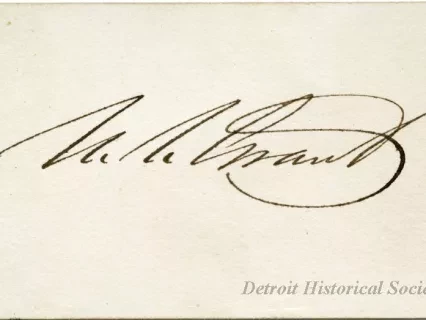 U. S. Grant
Detroit Historical Socie